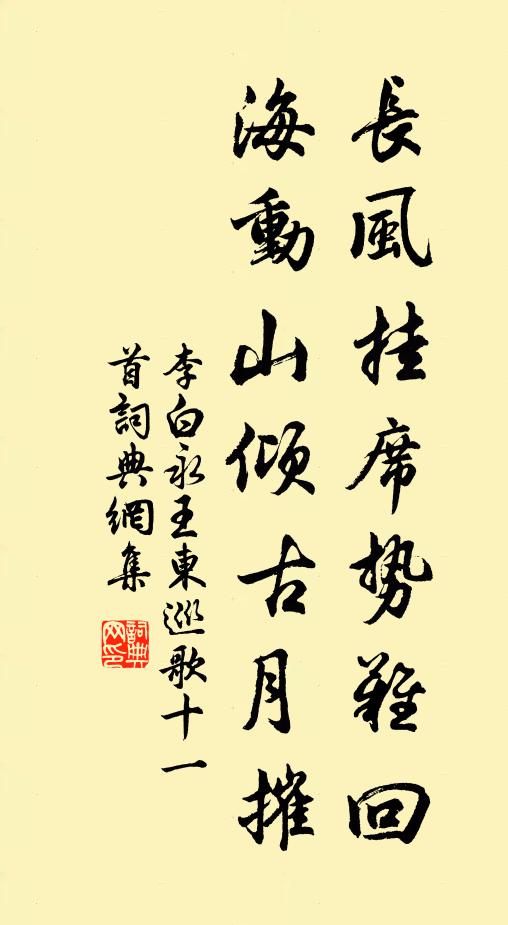 長風挂席勢難回
海動山傾古月摧
李白永王東巡歌十一
首詞典網集
詞典
网印